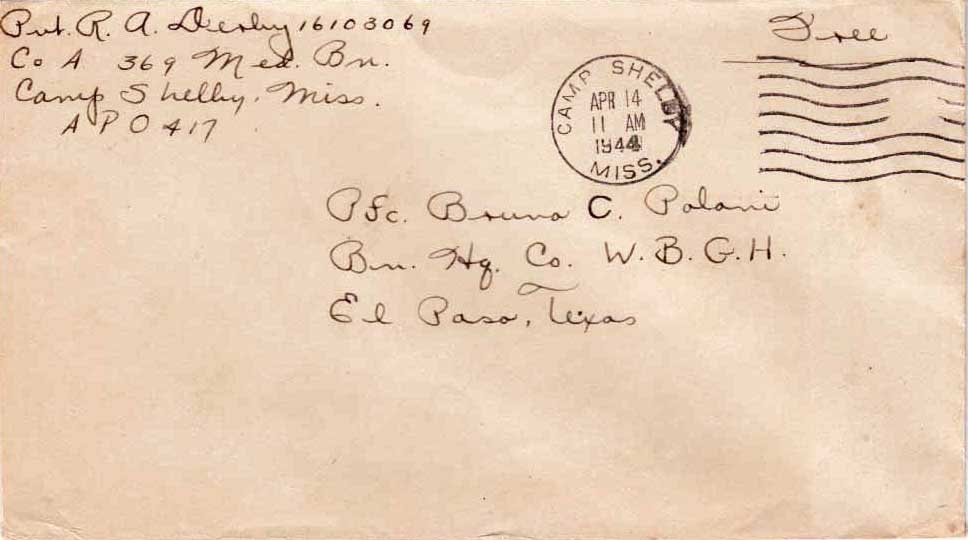 Pvt. R. A. Derby 16103069
Co A 369 Med. Bn.
Camp Shelby, Miss.
APO 417
Free
CAMP SHELBY
APR 14
11 AM
1944
MISS.
Pfc. Bruno C. Palani
Bn. Hq. Co. W.B.G.H.
El Paso, Texas